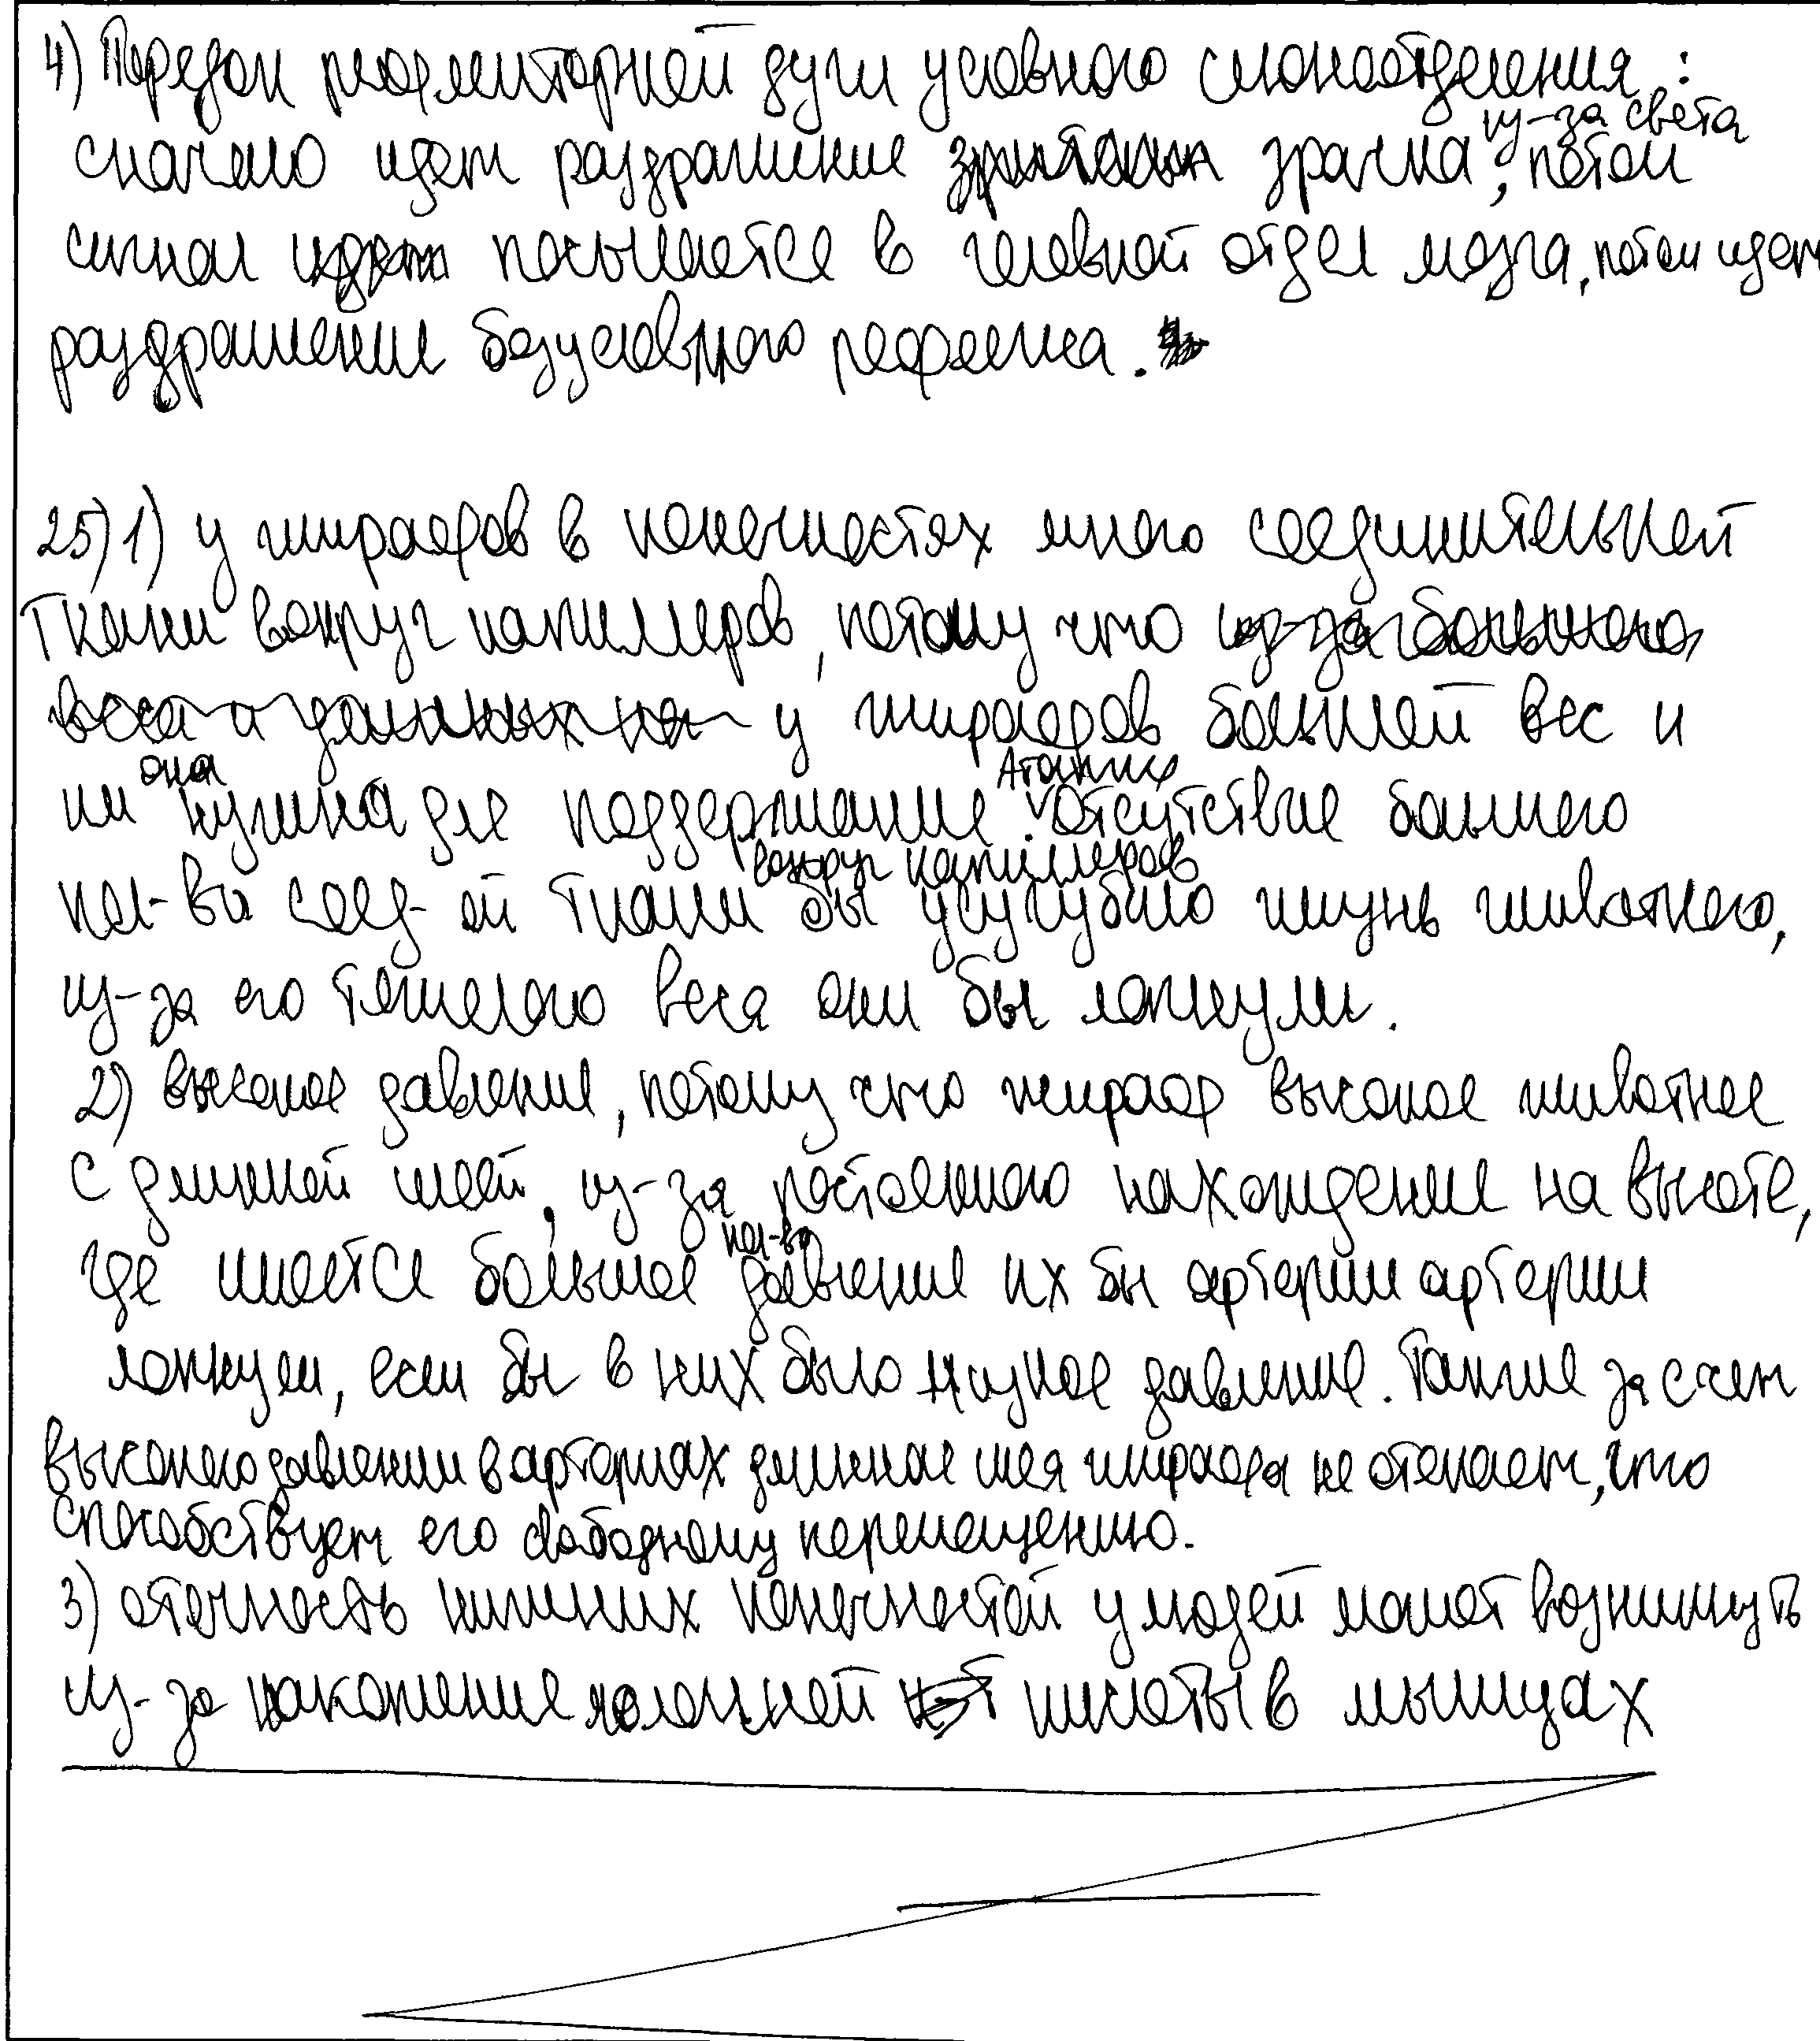 4) Порядок рефлекторной дуги условного слюноотделения:
сначало идет раздражение зрачка из-за света, потом
сигнал посылается в головной отдел мозга, потом идет
раздражение безусловного рефлекса.
25) 1) у жирафов в конечностях много соединительной
ткани вокруг капилляров, потому что
у жирафов большой вес и
им она нужна для поддержание. А также отсутствие большего
кол-ва соед-ой ткани вокруг капилляров бы усугубило жизнь животного,
из-за его тяжелого веса они бы лопнули.
2) высокое давление, потому что жираф высокое животное
с длинной шеей, из-за постоянного нахождение на высоте,
где имеется большое кол-во давление их бы артерии артерии
лопнули, если бы в них было низкое давление. Также за счет
высокого давлении в артериях длинное шея жирафа не отекает, что
способствует его свободному перемещению.
3) отечность нижних конечностей у людей может возникнуть
из-за накопление молочной кислоты в мышцах